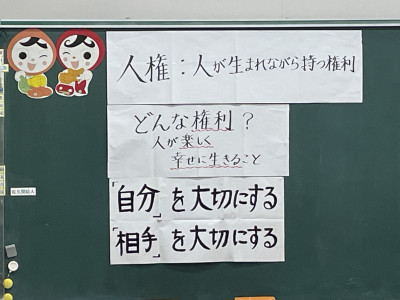 人権：人が生まれながら持つ権利
どんな権利？
人が楽しく
幸せに生きること
「自分」を大切にする
「相手」を大切にする